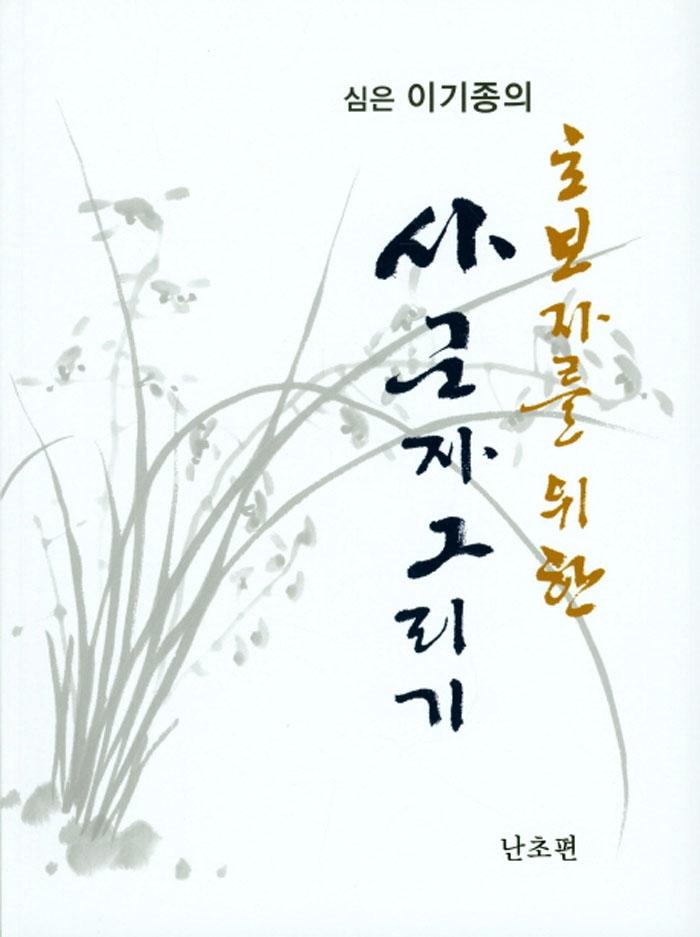 심은 이기종의
초보자를 위한
사군자 그리기
난초편